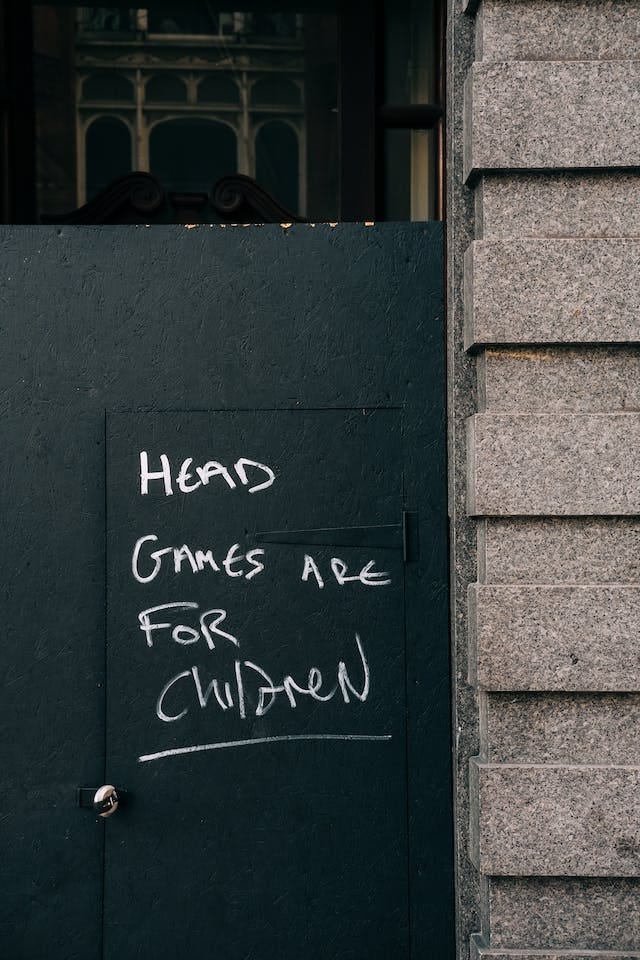 HEAD
GAMES ARE
FOR
CHILDREN